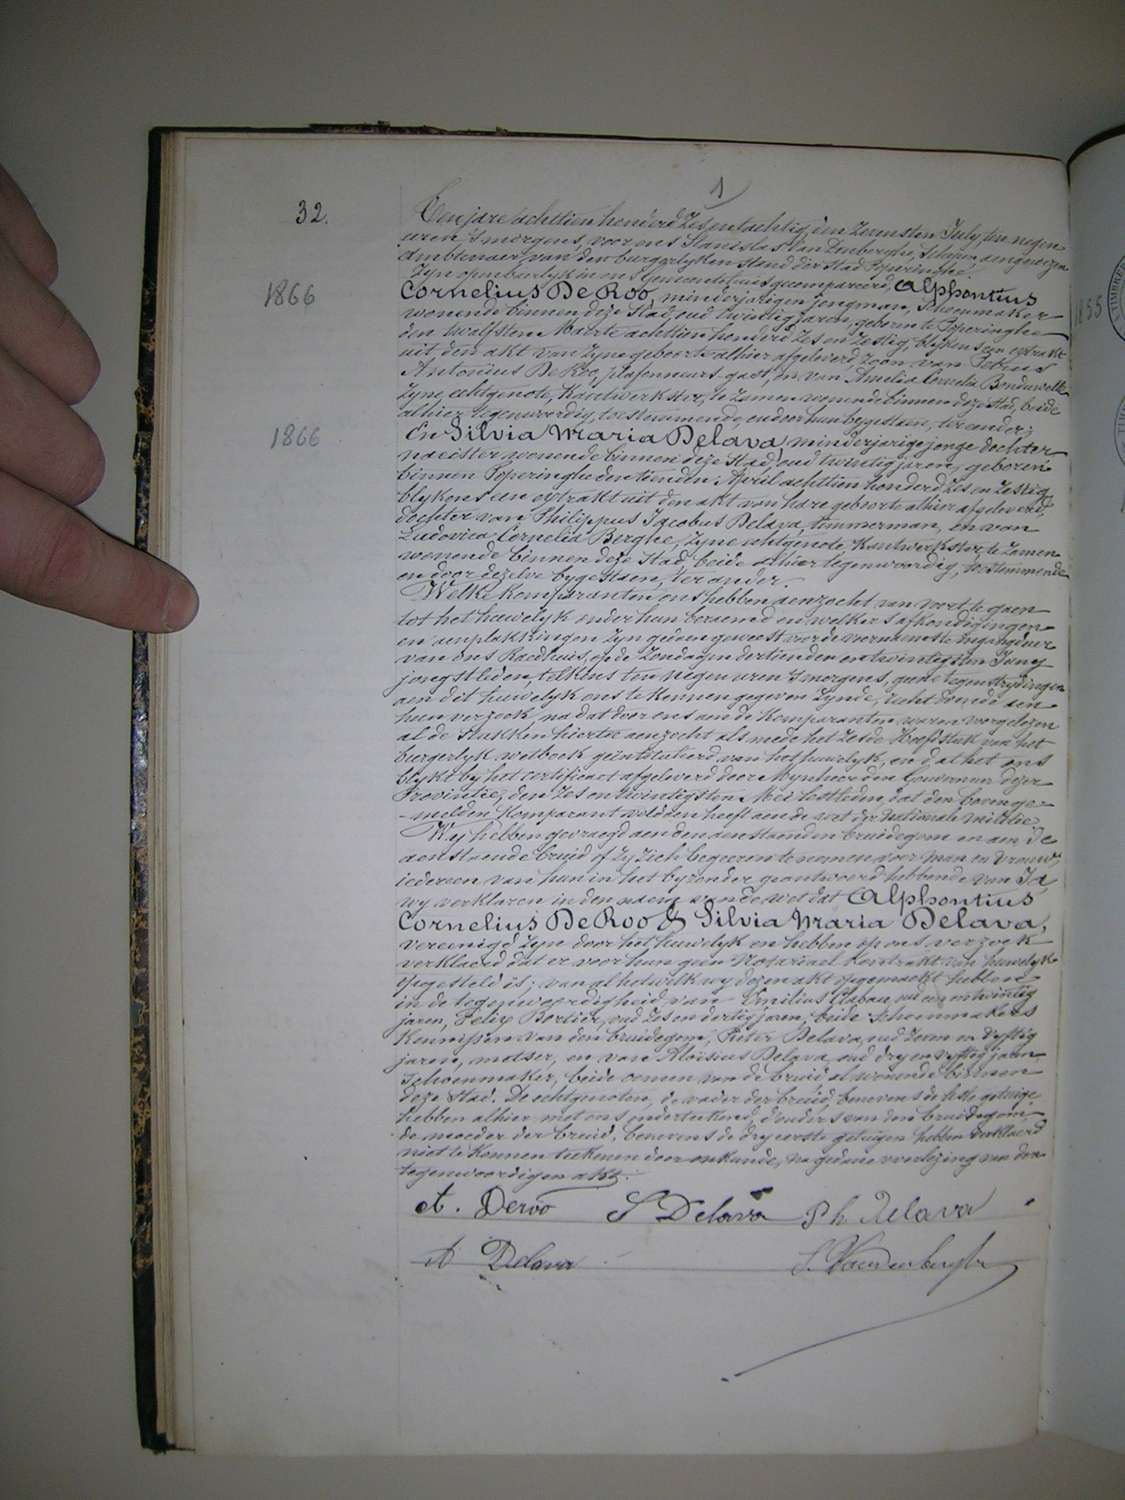 1
32.
Ten jare achttien honderd zes en tachtig, den zevensten July, ten negen
uren 's morgens, voor ons Stanislas Van Denberghe, Schepen, aengewezen
ambtenaer van den burgerlyken stand der stad Poperinghe
zyn openbaerlyk in ons Gemeentehuis gecompareerd, Alphontius
1866
Cornelius De Roo, minderjarigen jongman, Schoenmaker
wonende binnen deze stad, oud twintig jaren, geboren te Poperinghe
den twalfsten Maarte achttien honderd zes en zestig, blykens een extrakt
uit den akt van zyne geboorte alhier afgeleverd, zoon van
Antonius De Roo, plafonneurs gast, en van Amelia Cornelia Bonduwelle
zyne echtgenote, Kantwerkster, te zamen wonende binnen deze stad, beide
alhier tegenwoordig, toestemmende, en door hun bygestaen, ter eender;
1866
En Silvia Maria Delava, minderjarige jonge dochter
naeister wonende binnen deze stad, oud twintig jaren, geboren
binnen Poperinghe den tienden April achttien honderd zes en zestig
blykens een extrakt uit den akt van hare geboorte alhier afgeleverd,
dochter van Philippus Jacobus Delava, timmerman, en van
Ludovica Cornelia Berghe, zyne echtgenote Kantwerkster, te zamen
wonende binnen deze stad, beide alhier tegenwoordig, toestemmende
en door dezelve bygestaen, ter ander.
Welke komparanten ons hebben aenzocht van voort te gaen
tot het huwelyk onder hun beraemd en welkers afkondigingen
en aenplakkingen zyn gedaen geweest voor de voornaemste ingangdeur
van ons Raedhuis, op de zondagen dertienden en twintigsten Juny
jongstleden, telkens ten negen uren 's morgens, geene tegenstrydingen
aen dit huwelyk ons te kennen gegeven zynde, recht doende aen
hun verzoek, na dat door ons aen de Komparanten waren voorgelezen
al de stukken hiertoe aenzocht als mede het zesde Hoofdstuk van het
burgerlyk wetboek geïntituleerd van het huwelyk, en dat het ons
blykt by het certificaet afgeleverd door Mynheer den Gouverneur dezer
Provintie, den zes en twintigsten Mei lestleden, dat den bovenge-
-melden Komparant voldaen heeft aen de wet der nationale militie
Wy hebben gevraegd aen den aenstaenden bruidegom en aen de
aenstaende bruid of zy zich begeeren te nemen voor man en vrouw,
iedereen van hun in het byzonder geantwoord hebbende van Ja,
wy verklaren in den naem van de wet dat Alphontius
Cornelius De Roo & Silvia Maria Delava,
vereenigd zyn door het huwelyk en hebben op ons verzoek
verklaerd dat er voor hun geen Notariael kontrakt van huwelyk
opgesteld is; van al hetwelk wy dezen akt opgemaekt hebben
in de tegenwoordigheid van Emilius oud een en twintig
jaren, Felix Bertier, oud zes en dertig jaren, beide schoenmakers
Kennissen van den bruidegom, Pieter Delava, oud zeven en vyftig
jaren, metser, en van Aloisius Delava, oud dry en vyftig jaren
Schoenmaker, beide oomen van de bruid al wonende binnen
deze stad. De echtgenoten, de vader der bruid, benevens de leste getuige
hebben alhier met ons onderteekend, d'ouders van den bruidegom,
de moeder der bruid, benevens de dry eerste getuigen hebben verklaerd
niet te konnen teekenen door onkunde, na gedane voorlezing van den
tegenwoordigen akt.
A. Deroo S Delava Ph Delava
A Delava S. Vandenberghe
1855